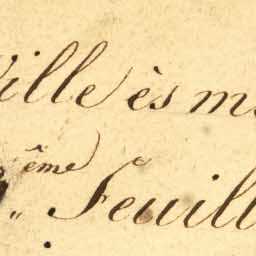 ville ès m
ème Feuill